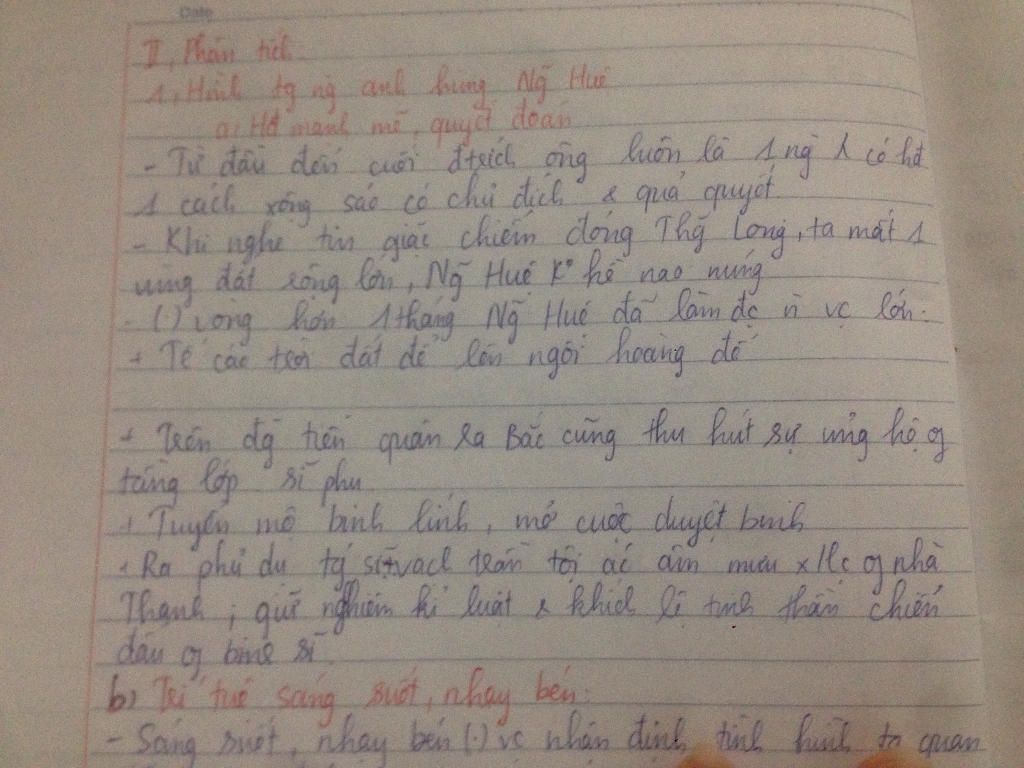 Date
II, Phân tích.
1, Hình tg ng anh hùng Ng Huệ
a, Hđ mạnh mẽ, quyết đoán
- Từ đầu đến cuối đtrích ông luôn là 1 ng có hđ
1 cách xông sáo có chủ đích & quả quyết.
- Khi nghe tin giặc chiếm đóng Thg Long, ta mất 1
vùng đất rộng lớn, Ng Huệ K° hề nao núng
- (.) vòng hơn 1 tháng Ng Huệ đã làm đc n vc lớn:
+ Tế các trời đất để lên ngôi hoàng đế
+ Trên đg tiến quân ra Bắc cũng thu hút sự ủng hộ of
tầng lớp sĩ phu
+ Tuyển mộ binh lính, mở cuộc duyệt binh
+ Ra phủ dụ tg sĩ, vạch trần tội ác âm mưu xlc of nhà
Thanh, giữ nghiêm kỉ luật & khích lệ tinh thần chiến
đấu of binh sĩ.
b) Trí tuệ sáng suốt, nhạy bén:
- Sáng suốt, nhạy bén (.) vc nhận định tình hình tq quan